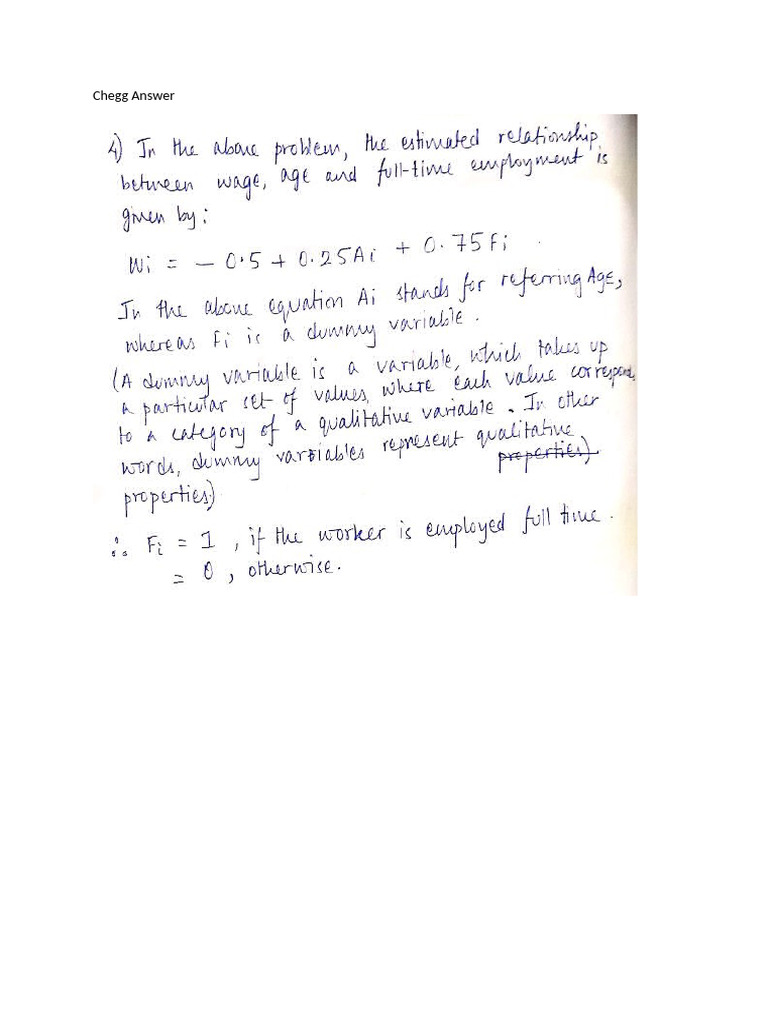 Chegg Answer
4) In the above problem, the estimated relationship
between wage, age and full-time employment is
given by:
Wi = - 0.5 + 0.25Ai + 0.75Fi .
In the above equation Ai stands for referring Age,
whereas Fi is a dummy variable.
(A dummy variable is a variable, which takes up
a particular set of values, where each value correspond
to a category of a qualitative variable. In other
words, dummy variables represent qualitative
properties)
properties)
∴ Fi = 1 , if the worker is employed full time.
= 0 , otherwise.